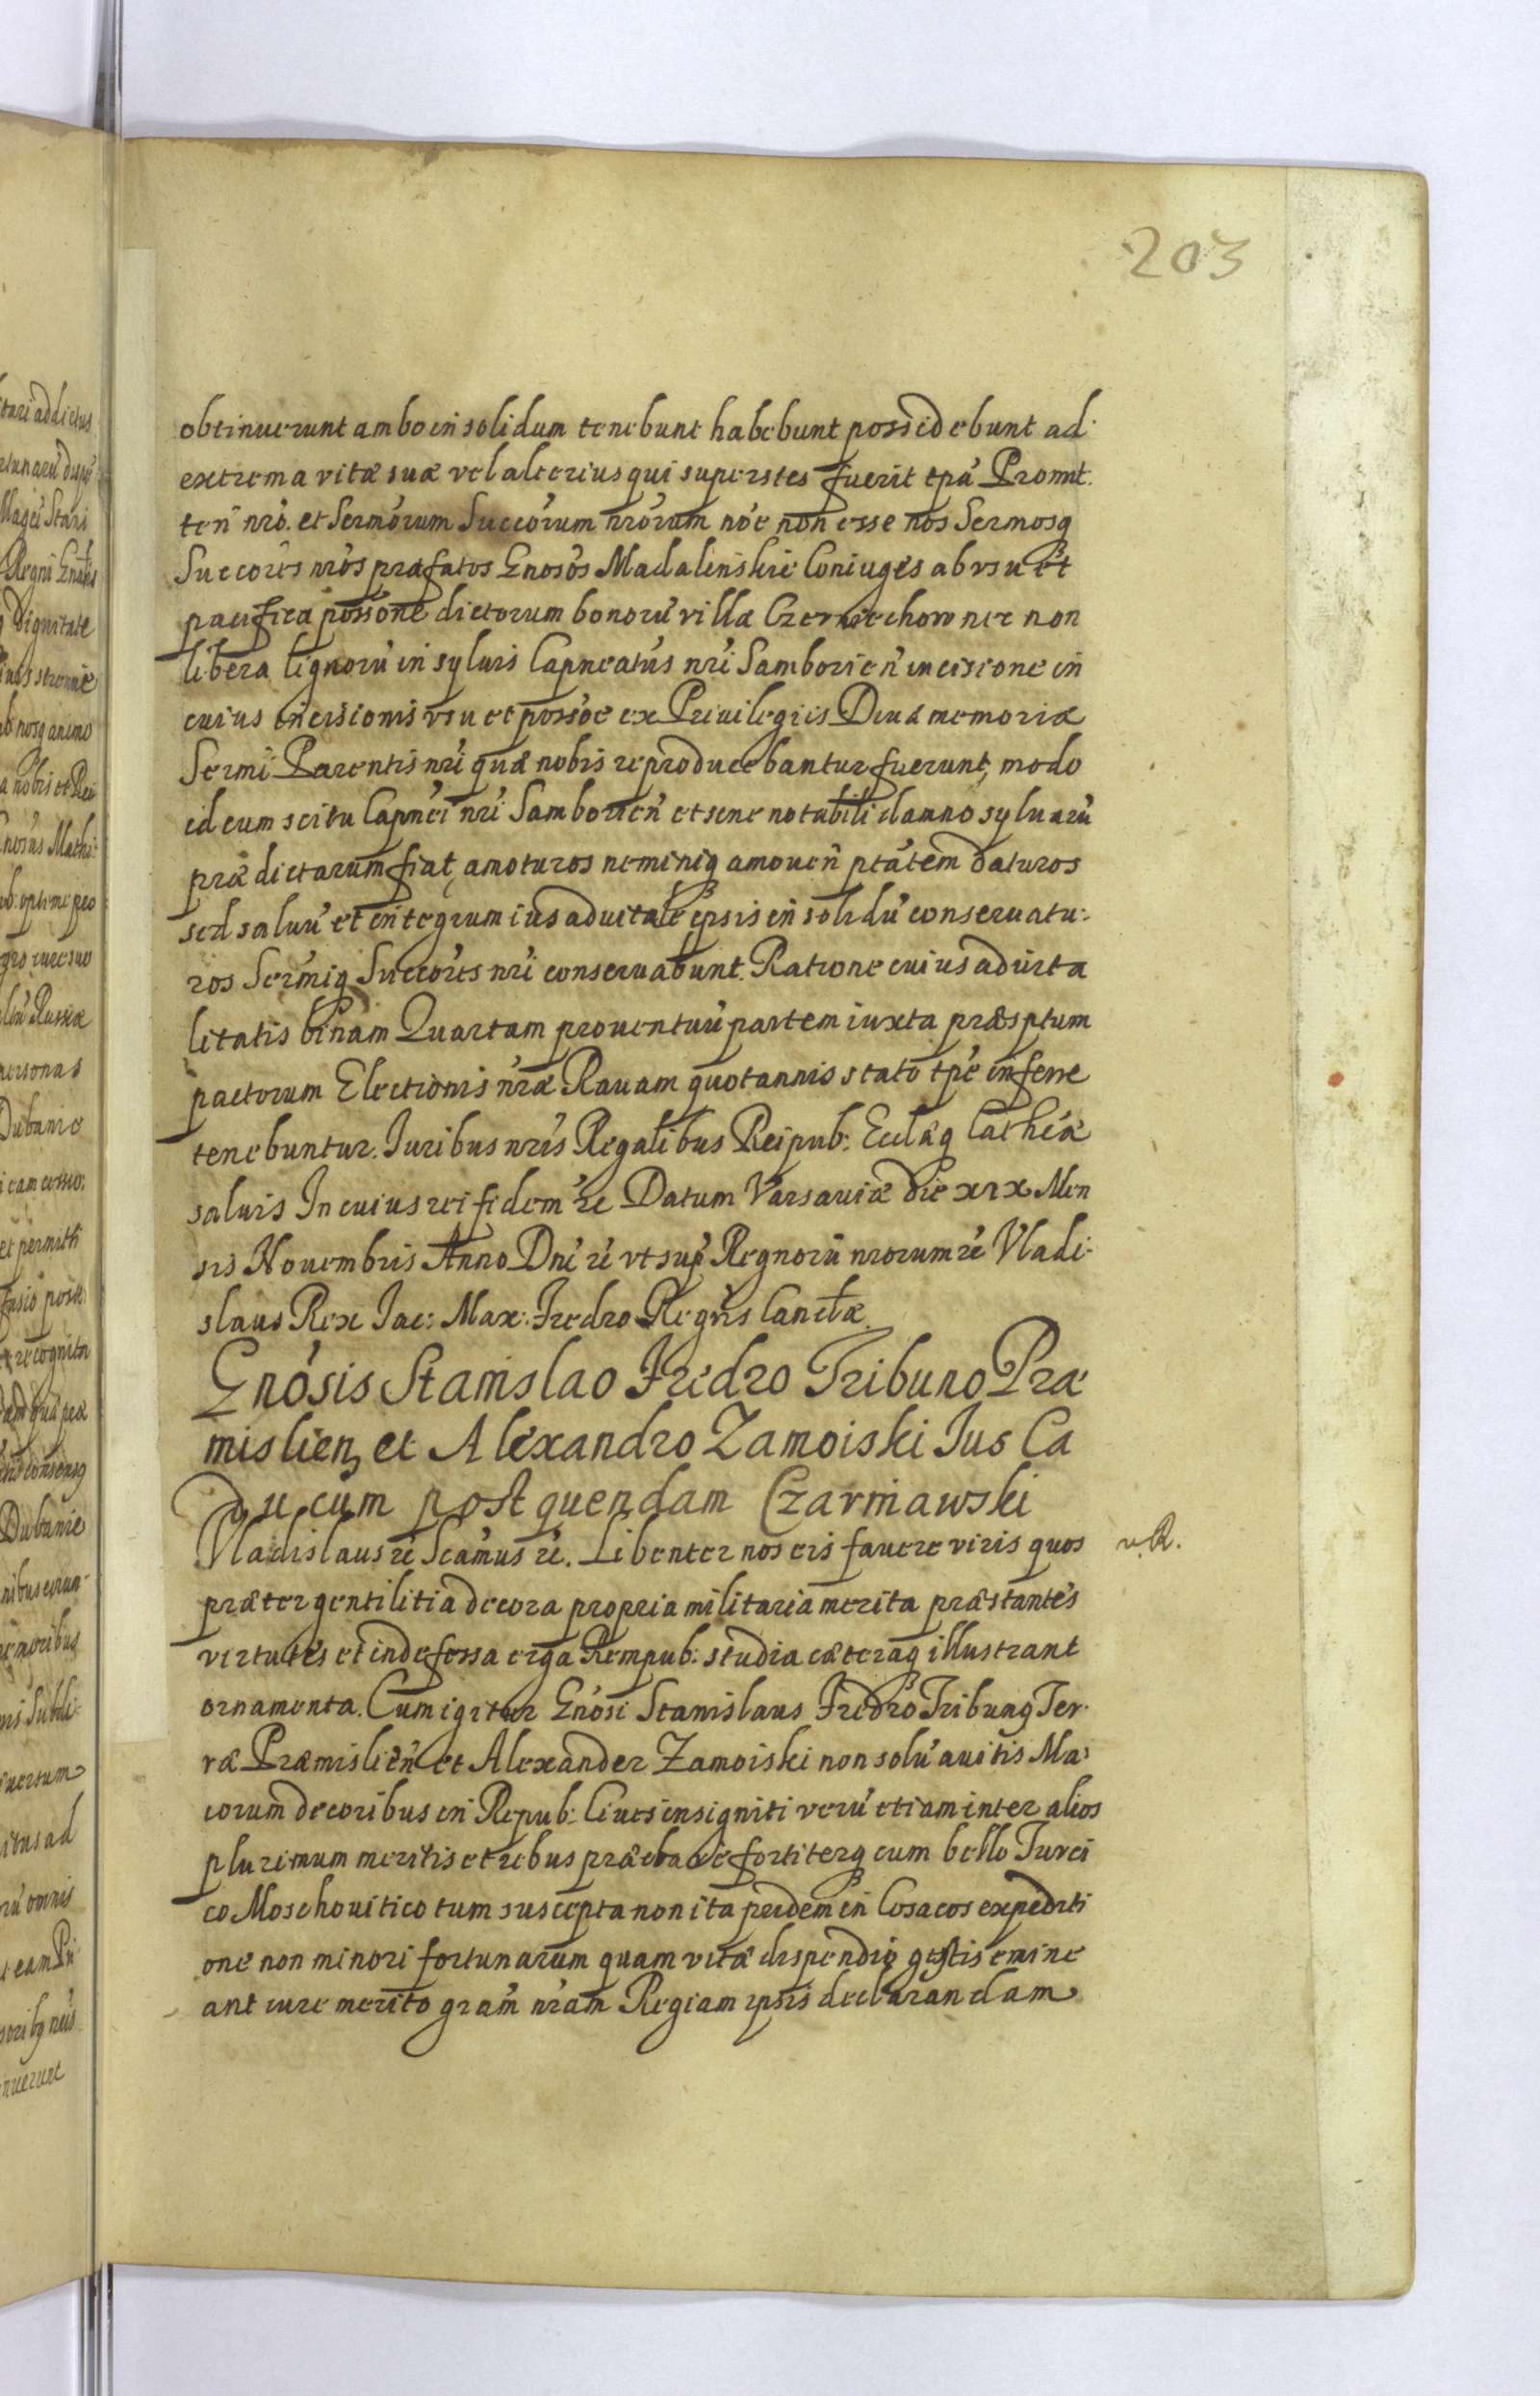 203
obtinuerunt ambo in solidum tenebunt habebunt possidebunt ad
extrema vitæ suæ vel alterius qui superstes fuerit tpa Promit:
ten nro. et Sermorum Succorum nrorum noe non esse nos Sermosq
Succores nros præfatos Gnosos Madalinskie Coniuges ab vsu et
pacifica possone dictorum bonoru villæ Czerniechow nec non
libera lignoru in syluis Capneatus nri Samborien incisione in
cuius incisionis vsu et possoe ex Priuilegiis Diuæ memoriæ
Sermi Parentis nri quæ nobis reproducebantur fuerunt, modo
id cum scitu Capnei nri Samborien et sine notabili damno syluaru
prædictarum fiat, amoturos neminiq amouen ptatem daturos
sed saluu et integrum ius aduitale ipsis in solidu conseruatu:
ros Sermiq Succores nri conseruabunt. Ratione cuius aduita
litatis binam Quartam prouentuu partem iuxta præsptum
pactorum Electionis nræ Rauam quotannis stato tpe inferre
tenebuntur. Iuribus nris Regalibus Reipub: Ecclæq Catheæ
saluis In cuius rei fidem re Datum Varsauiæ die xix Men
sis Nouembris Anno Dni re vt sup Regnoru nrorum re Vladi:
slaus Rex Iac: Max: Fredro Regris Canctæ.
Gnosis Stanislao Fredro Tribuno Præ
mislien et Alexandro Zamoiski Ius Ca
ducum post quendam Czarniawski
Vladislaus re Scamus re. Libenter nos eis fauere viris quos
v. R.
præter gentilitia decora propria militaria merita præstantes
virtutes et indefessa erga Rempub: studia cæteraq illustrant
ornamenta. Cum igitur Gnosi Stanislaus Fredro Tribunq Ter:
ræ Præmislien et Alexander Zamoiski non solu auitis Ma:
iorum decoribus in Repub: Ciues insigniti veru etiam inter alios
plurimum meritis et rebus præclare fortiterq cum bello Turci
co Moschouitico tum suscepta non ita pridem in Cosacos expediti
one non minori fortunarum quam vitæ dispendio gestis emine
ant iure merito gram nram Regiam ipsis declarandam